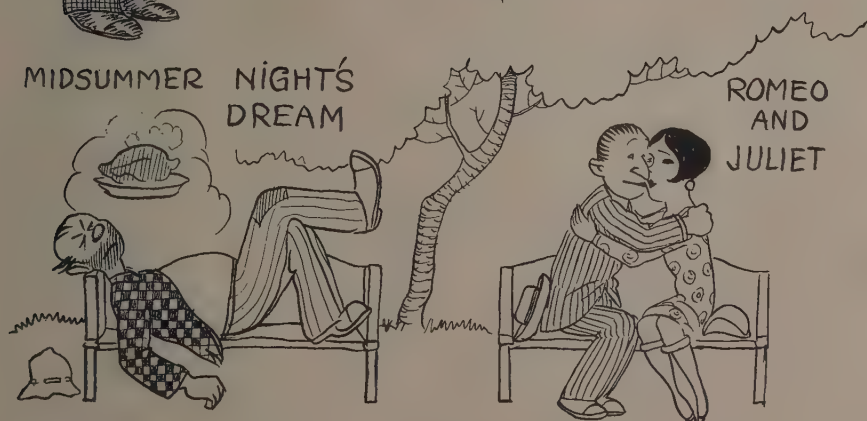 MIDSUMMER NIGHT'S
DREAM
ROMEO
AND
JULIET